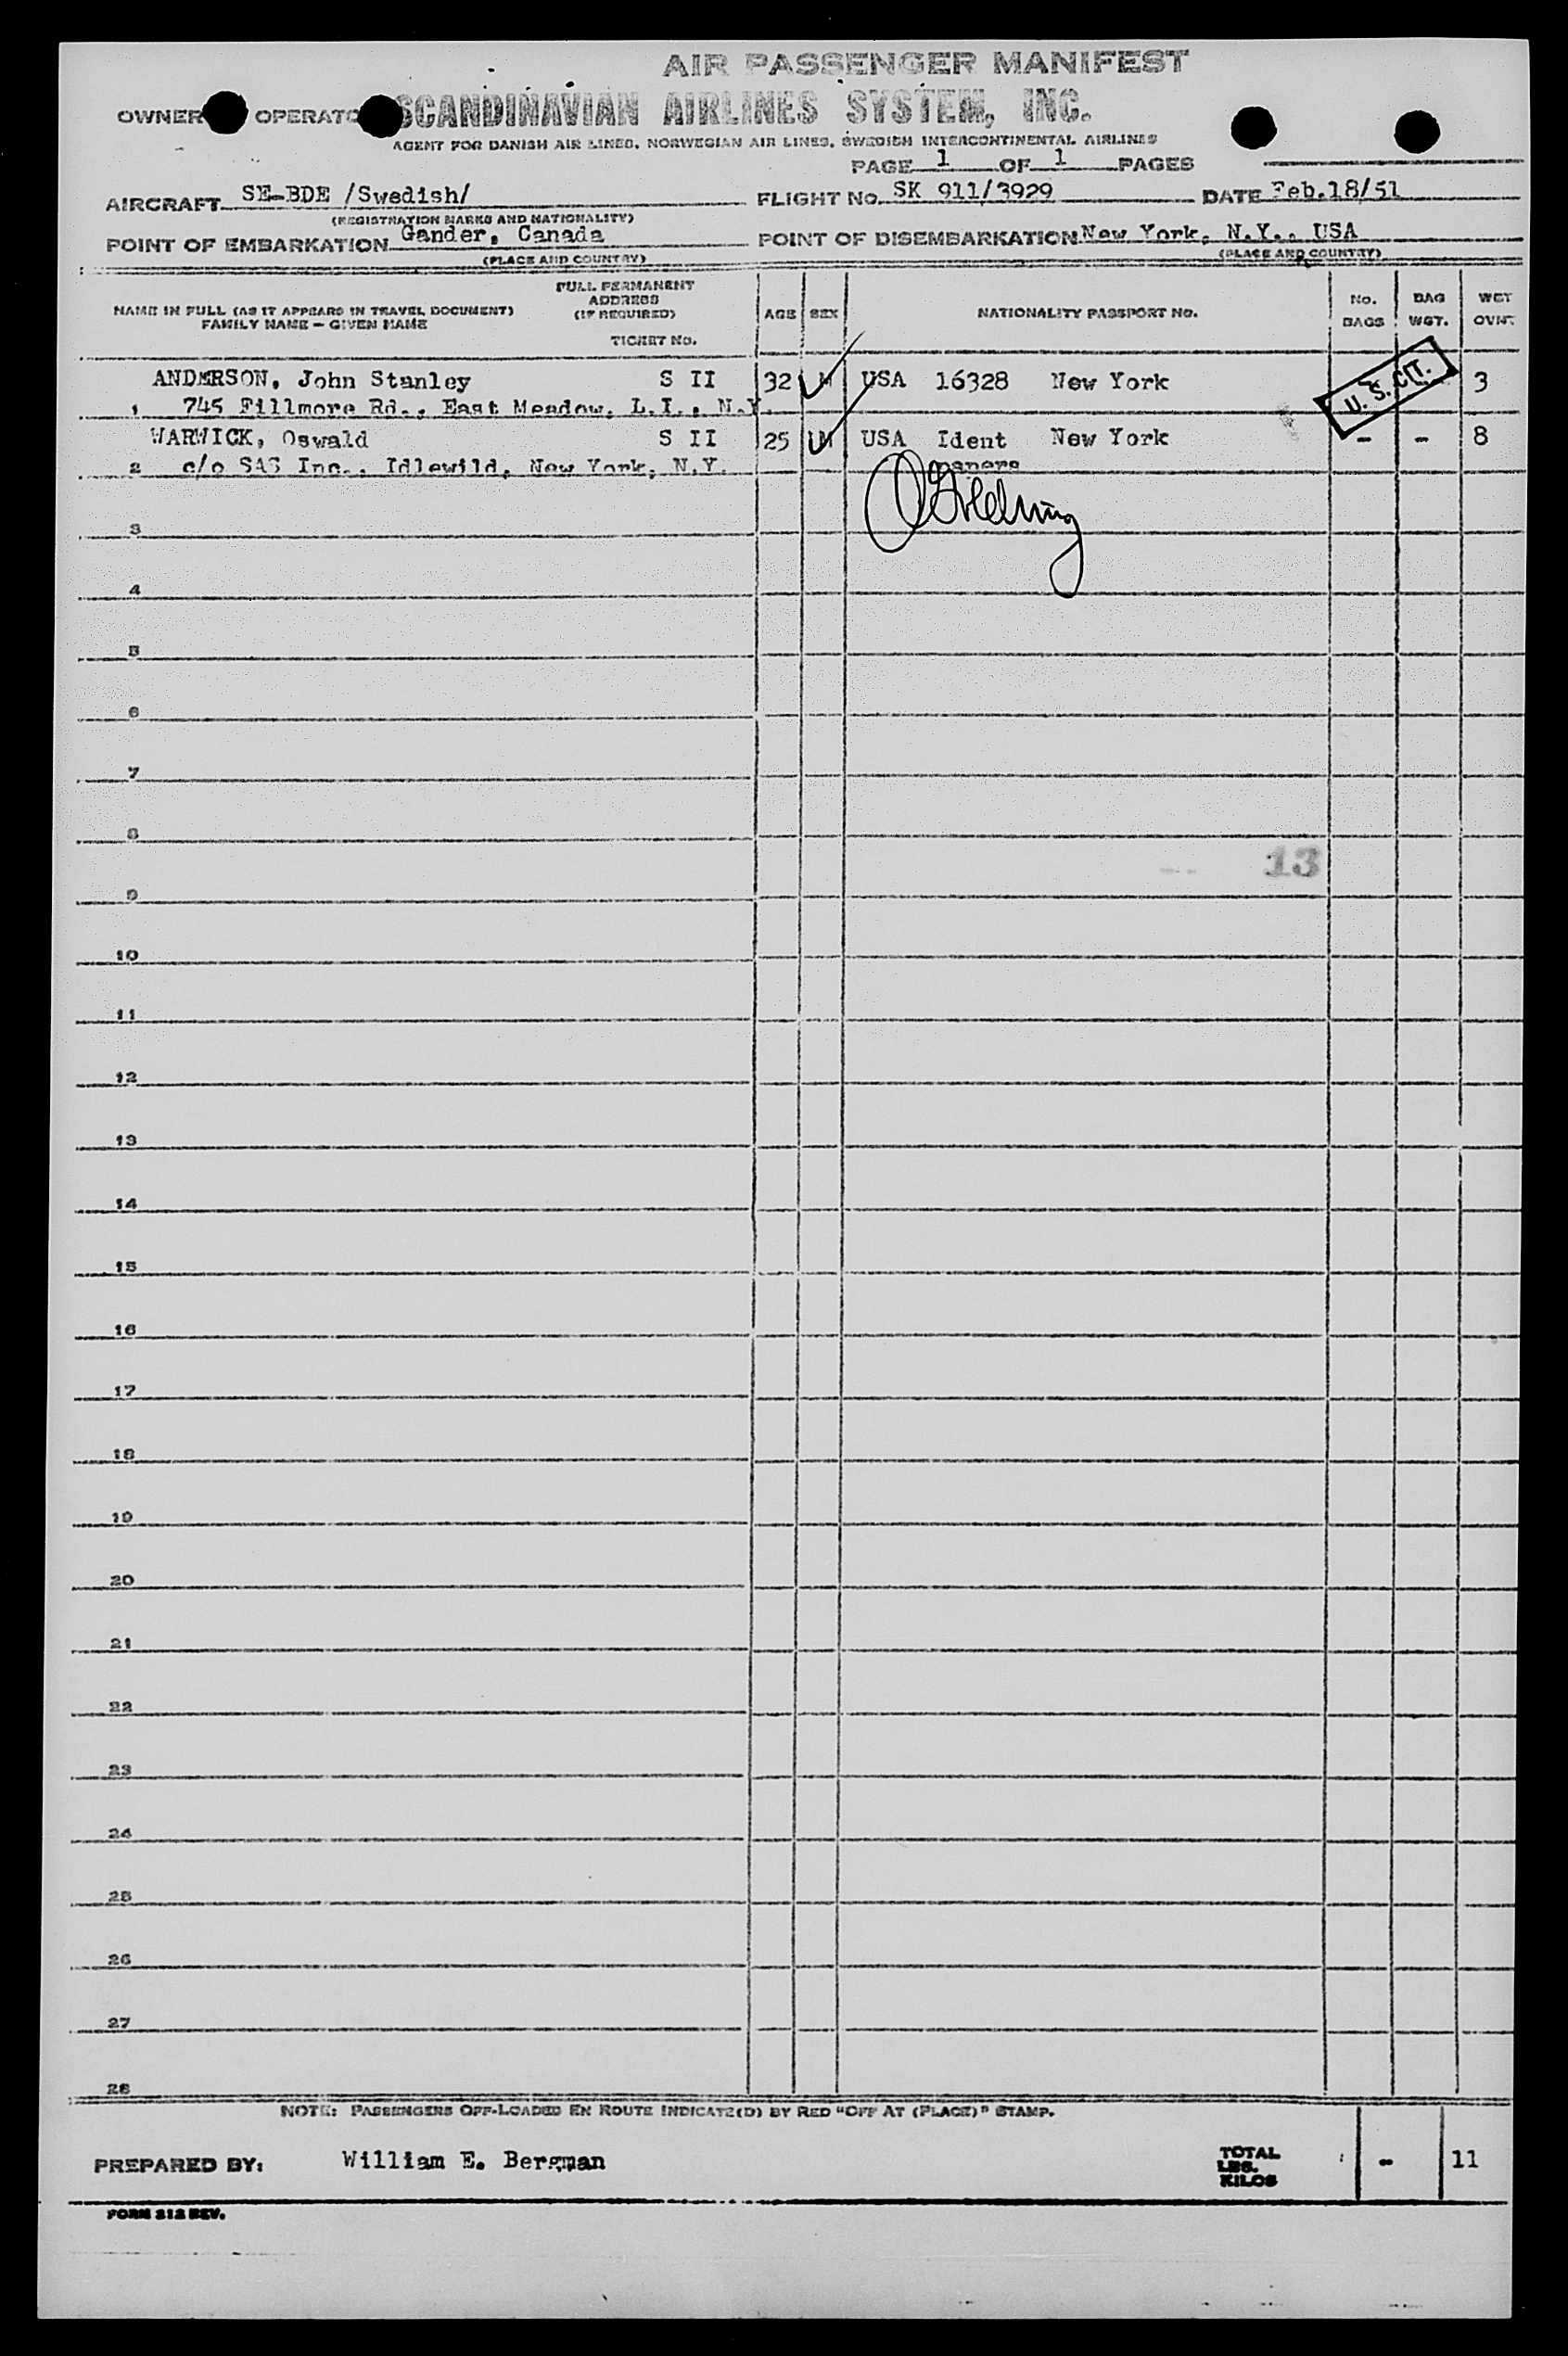 AIR PASSENGER MANIFEST
OWNER OPERATO SCANDINAVIAN AIRLINES SYSTEM, INC.
AGENT FOR DANISH AIR LINES, NORWEGIAN AIR LINES, SWEDISH INTERCONTINENTAL AIRLINES
PAGE 1 OF 1 PAGES
AIRCRAFT SE-BDE /Swedish/ FLIGHT No. SK 911/3929 DATE Feb.18/51
(REGISTRATION MARKS AND NATIONALITY)
POINT OF EMBARKATION Gander, Canada POINT OF DISEMBARKATION New York, N.Y., USA
(PLACE AND COUNTRY) (PLACE AND COUNTRY)
NAME IN FULL (AS IT APPEARS IN TRAVEL DOCUMENT)
FAMILY NAME - GIVEN NAME
FULL PERMANENT
ADDRESS
(IF REQUIRED)
TICKET No.
AGE SEX NATIONALITY PASSPORT No. No. BAGS BAG WGT. WGT OVWT.
ANDERSON, John Stanley S II 32 M USA 16328 New York U. S. CIT. 3
1 745 Fillmore Rd., East Meadow, L.I., N.Y.
WARWICK, Oswald S II 25 M USA Ident New York - - 8
2 c/o SAS Inc., Idlewild, New York, N.Y. papers
3
4
5
6
7
8
13
9
10
11
12
13
14
15
16
17
18
19
20
21
22
23
24
25
26
27
28
NOTE: PASSENGERS OFF-LOADED EN ROUTE INDICATE(D) BY RED "OFF AT (PLACE)" STAMP.
PREPARED BY: William E. Bergman TOTAL LBS. KILOS - 11
FORM 212 REV.